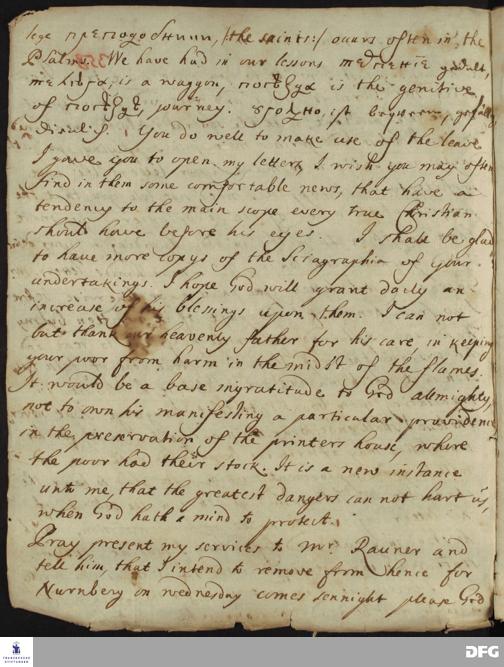 lege преподобнии, /:the saints:/ occurs often in the
Psalms. We have had in our lessons
is a waggon, is the genitive
of journey. ist
You do well to make use of the leave
I gave you to open my letters, I wish you may often
find in them some comfortable news, that have a
tendency to the main scope every true Christian
should have before his eyes. I shall be glad
to have more copys of the Sciagraphia of your
undertakings. I hope God will grant daily an
increase of his blessings upon them. I can not
but thank our heavenly father for his care in keeping
your poor from harm in the midst of the flames.
It would be a base ingratitude to God allmighty,
not to own his manifesting a particular providence
in the preservation of the printers house, where
the poor had their stock. It is a new instance
unto me, that the greatest dangers can not hart us,
when God hath a mind to protect.
Pray present my services to Mr. Rauner and
tell him, that I intend to remove from hence for
Nurnberg on wednesday comes sennight please God
FRANCKESCHE STIFTUNGEN
DFG